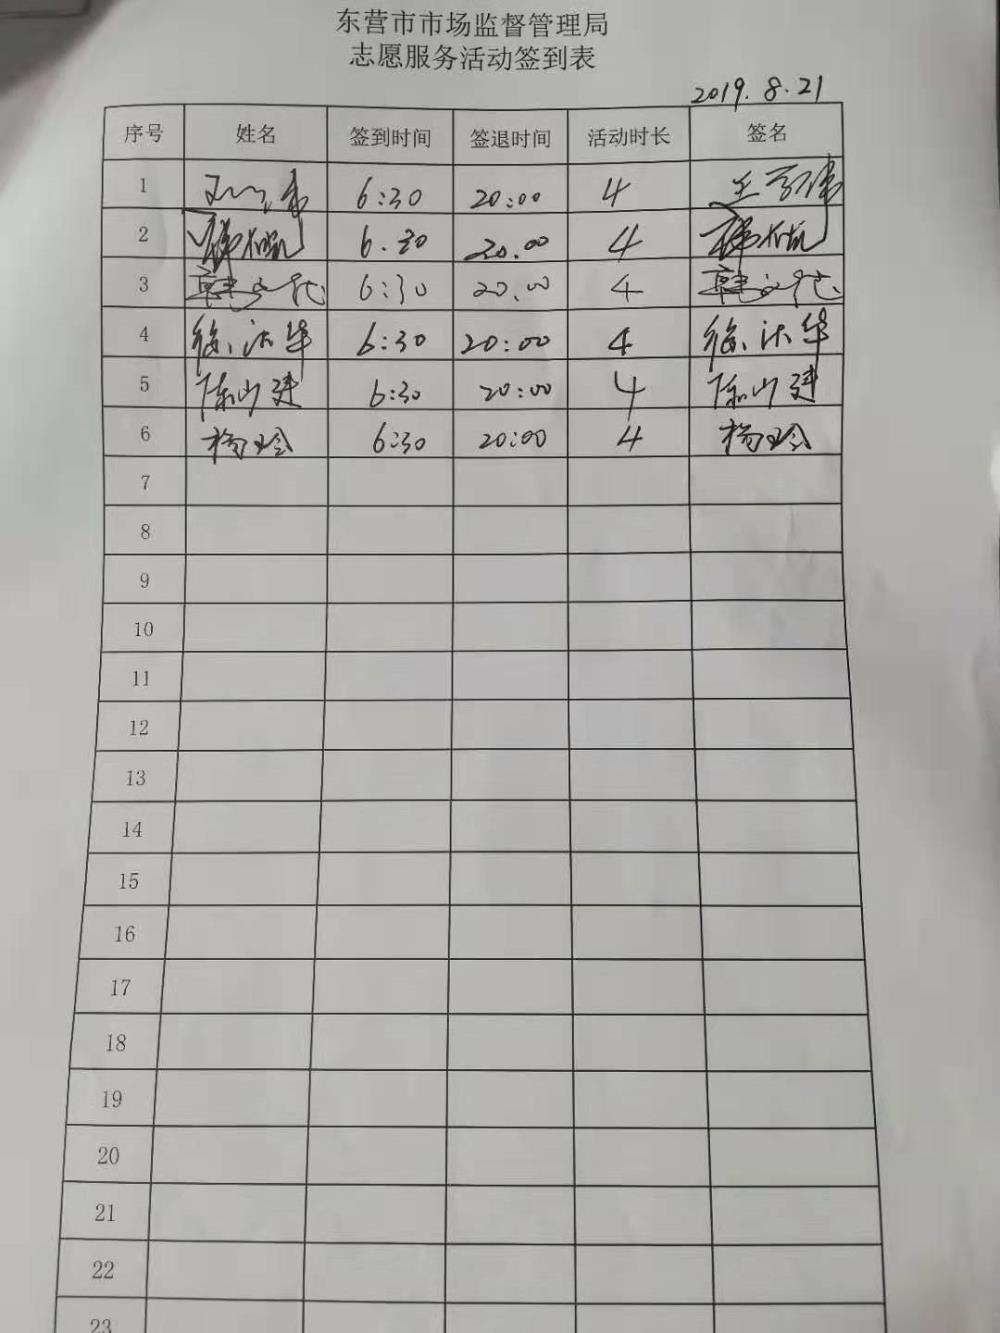 东营市市场监督管理局
志愿服务活动签到表
2019.8.21
序号 姓名 签到时间 签退时间 活动时长 签名
1 6:30 20:00 4 王
2 6.30 20.00 4
3 韩文 6:30 20.00 4 韩文
4 徐 华 6:30 20:00 4 徐 华
5 陈 建 6:30 20:00 4 陈 建
6 杨玲 6:30 20:00 4 杨玲
7
8
9
10
11
12
13
14
15
16
17
18
19
20
21
22
23